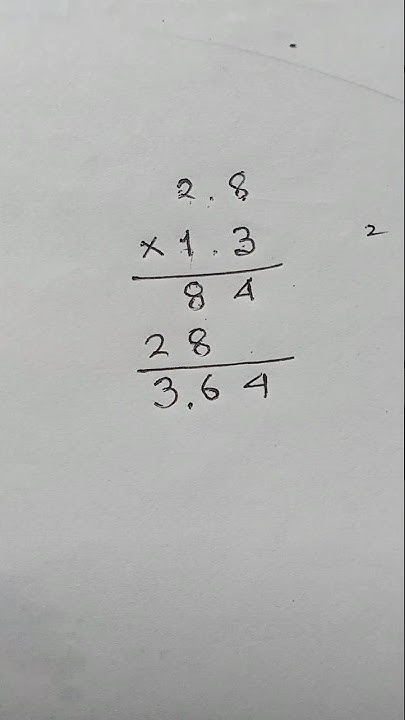 2.8
×1.3 2
84
28
3.64